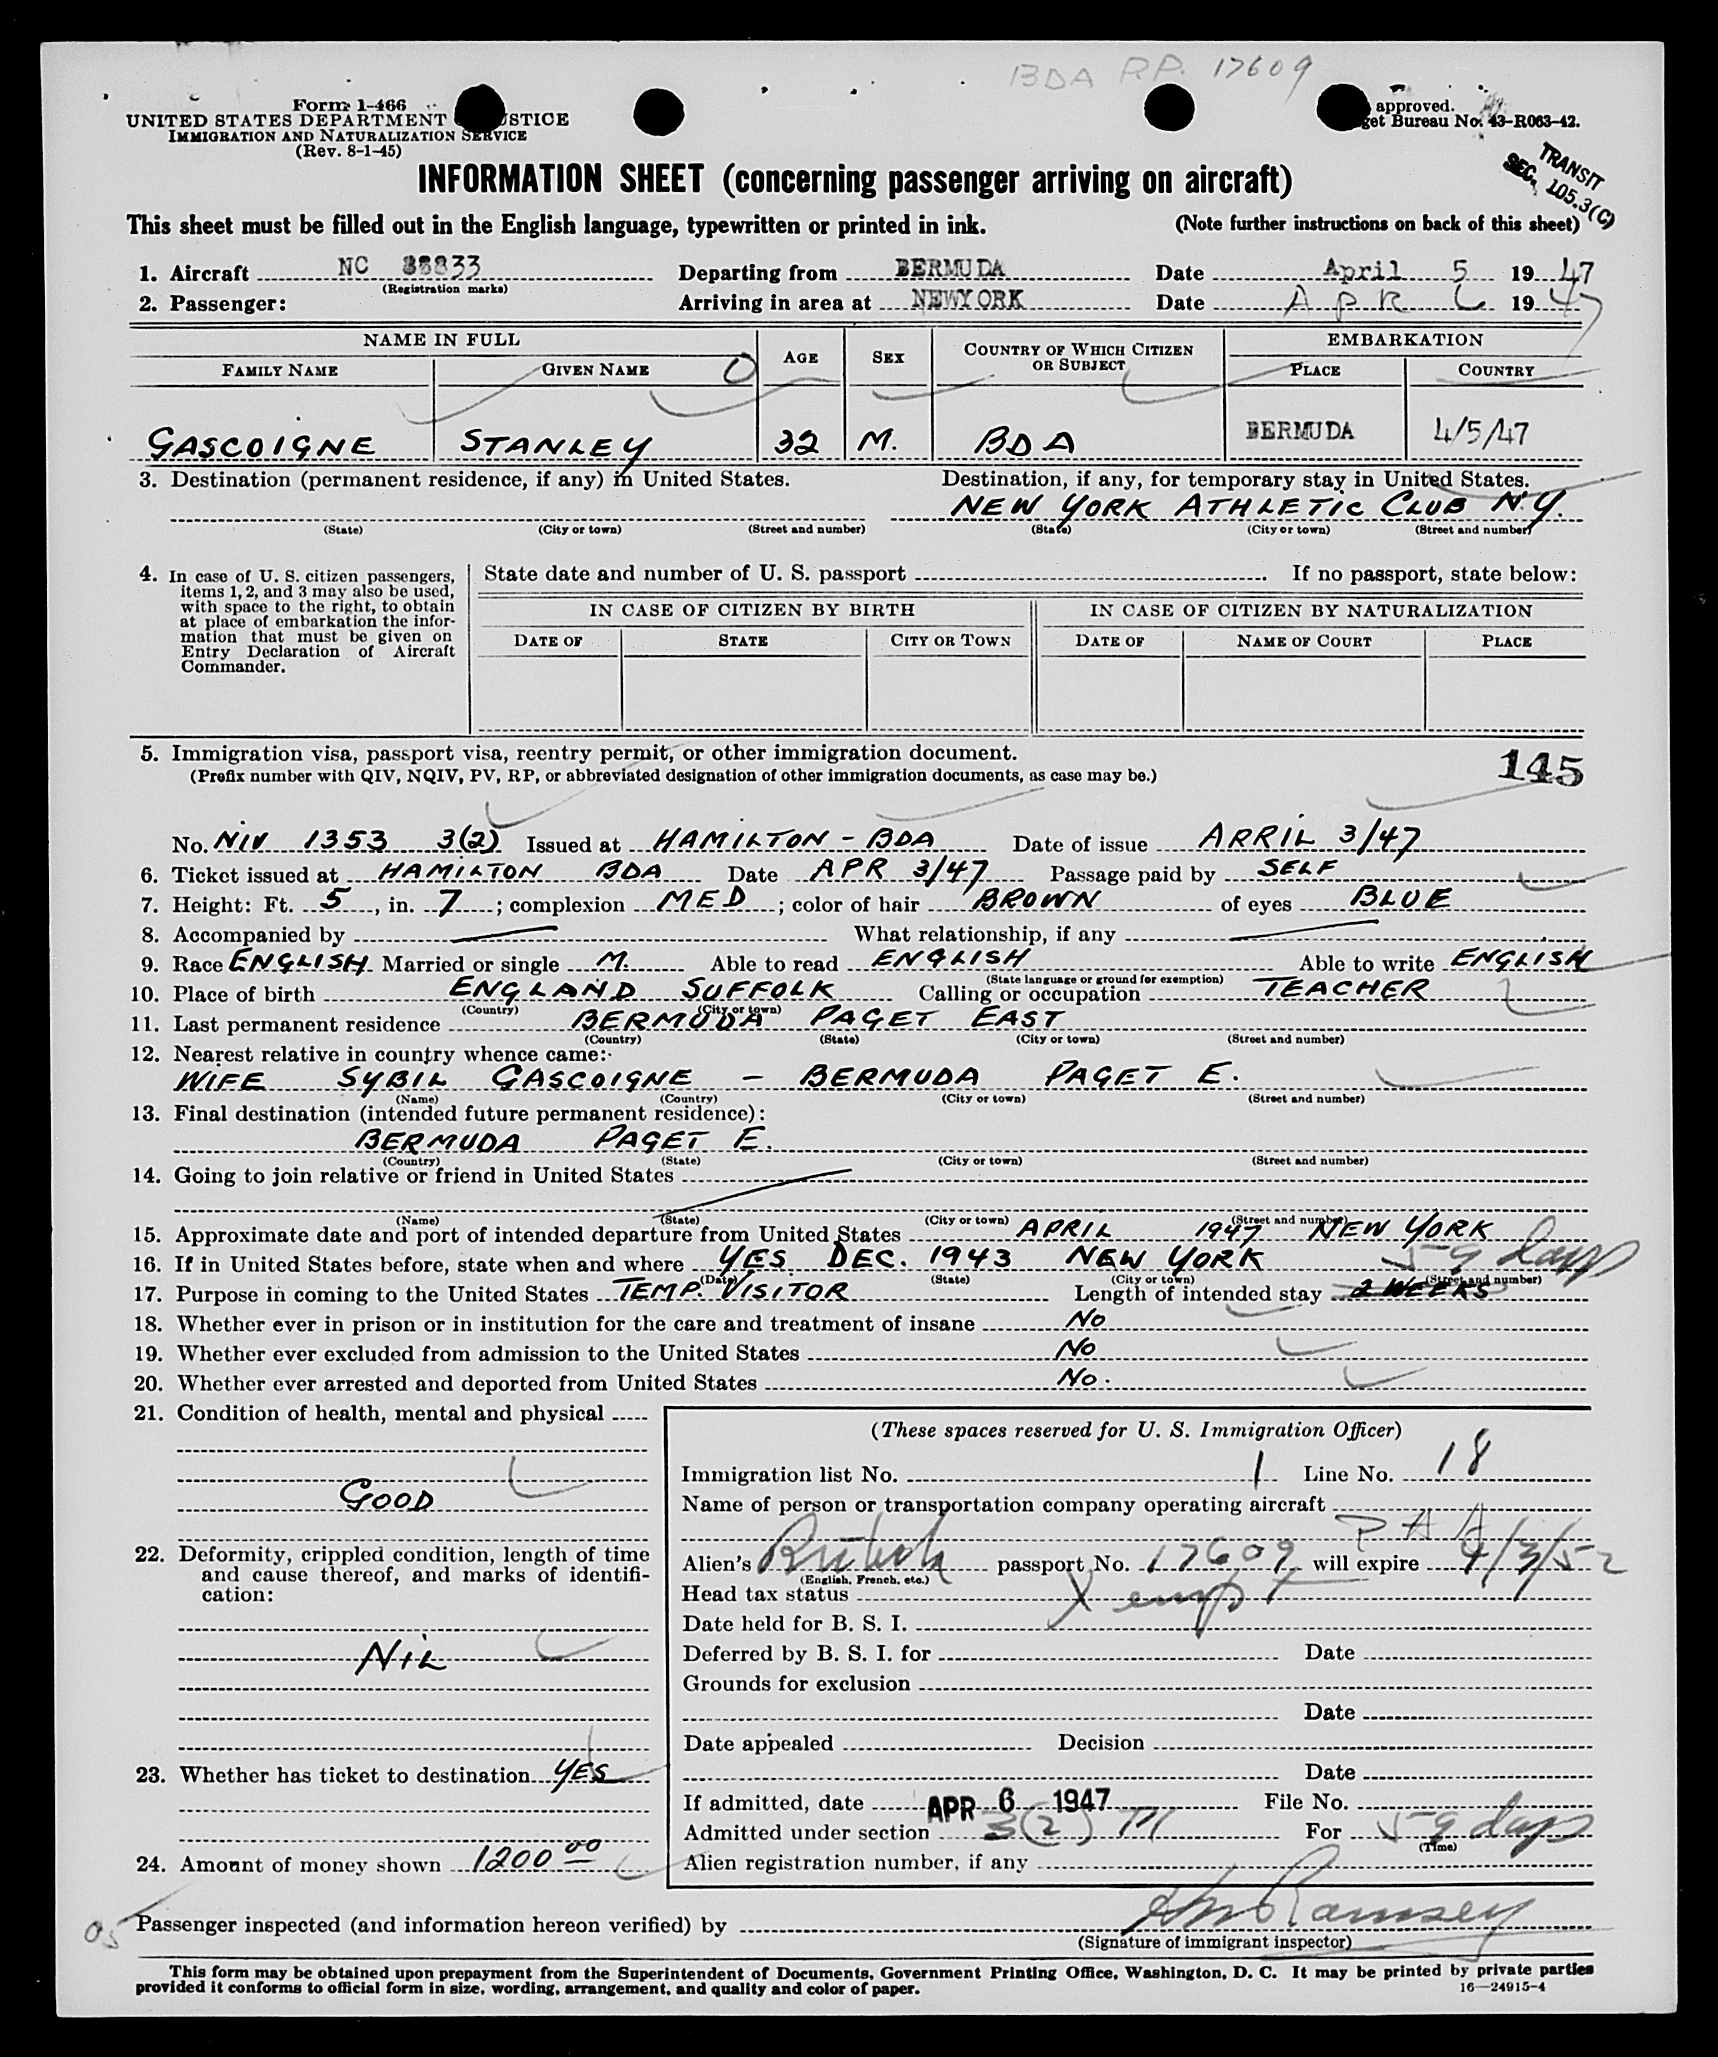 BDA RP. 17609
Form I-466
UNITED STATES DEPARTMENT STICE
IMMIGRATION AND NATURALIZATION SERVICE
(Rev. 8-1-45)
approved.
get Bureau No. 43-R063-42.
TRANSIT
SEC. 105.3(C)
INFORMATION SHEET (concerning passenger arriving on aircraft)
This sheet must be filled out in the English language, typewritten or printed in ink. (Note further instructions on back of this sheet)
1. Aircraft NC 88833 Departing from BERMUDA Date April 5 1947
(Registration marks)
2. Passenger: Arriving in area at NEWYORK Date APR 6 1947
NAME IN FULL AGE SEX COUNTRY OF WHICH CITIZEN OR SUBJECT EMBARKATION
FAMILY NAME GIVEN NAME O PLACE COUNTRY
GASCOIGNE STANLEY 32 M. BDA BERMUDA 4/5/47
3. Destination (permanent residence, if any) in United States. Destination, if any, for temporary stay in United States.
NEW YORK ATHLETIC CLUB N.Y.
(State) (City or town) (Street and number) (State) (City or town) (Street and number)
4. In case of U. S. citizen passengers, items 1, 2, and 3 may also be used, with space to the right, to obtain at place of embarkation the information that must be given on Entry Declaration of Aircraft Commander.
State date and number of U. S. passport If no passport, state below:
IN CASE OF CITIZEN BY BIRTH IN CASE OF CITIZEN BY NATURALIZATION
DATE OF STATE CITY OR TOWN DATE OF NAME OF COURT PLACE
5. Immigration visa, passport visa, reentry permit, or other immigration document. 145
(Prefix number with QIV, NQIV, PV, RP, or abbreviated designation of other immigration documents, as case may be.)
No. NIV 1353 3(2) Issued at HAMILTON - BDA Date of issue APRIL 3/47
6. Ticket issued at HAMILTON BDA Date APR 3/47 Passage paid by SELF
7. Height: Ft. 5, in. 7; complexion MED; color of hair BROWN of eyes BLUE
8. Accompanied by What relationship, if any
9. Race ENGLISH Married or single M. Able to read ENGLISH Able to write ENGLISH
(State language or ground for exemption)
10. Place of birth ENGLAND SUFFOLK Calling or occupation TEACHER
(Country) (City or town)
11. Last permanent residence BERMUDA PAGET EAST
(Country) (State) (City or town) (Street and number)
12. Nearest relative in country whence came:
WIFE SYBIL GASCOIGNE - BERMUDA PAGET E.
(Name) (Country) (City or town) (Street and number)
13. Final destination (intended future permanent residence):
BERMUDA PAGET E.
(Country) (State) (City or town) (Street and number)
14. Going to join relative or friend in United States
(Name) (State) (City or town) (Street and number)
15. Approximate date and port of intended departure from United States APRIL 1947 NEW YORK
16. If in United States before, state when and where YES. DEC. 1943 NEW YORK 59 days
(Date) (State) (City or town) (Street and number)
17. Purpose in coming to the United States TEMP. VISITOR Length of intended stay 2 WEEKS
18. Whether ever in prison or in institution for the care and treatment of insane No
19. Whether ever excluded from admission to the United States No
20. Whether ever arrested and deported from United States No.
21. Condition of health, mental and physical
GOOD
22. Deformity, crippled condition, length of time and cause thereof, and marks of identification:
NIL
23. Whether has ticket to destination YES
24. Amount of money shown 1200 00
(These spaces reserved for U. S. Immigration Officer)
Immigration list No. 1 Line No. 18
Name of person or transportation company operating aircraft
PAA
Alien's British passport No. 17609 will expire 4/3/52
(English, French, etc.)
Head tax status Xempt
Date held for B. S. I.
Deferred by B. S. I. for Date
Grounds for exclusion
Date
Date appealed Decision
Date
If admitted, date APR 6 1947 File No.
Admitted under section 3(2) For 59 days
(Time)
Alien registration number, if any
05 Passenger inspected (and information hereon verified) by Ramsey
(Signature of immigrant inspector)
This form may be obtained upon prepayment from the Superintendent of Documents, Government Printing Office, Washington, D. C. It may be printed by private parties
provided it conforms to official form in size, wording, arrangement, and quality and color of paper. 16—24915-4